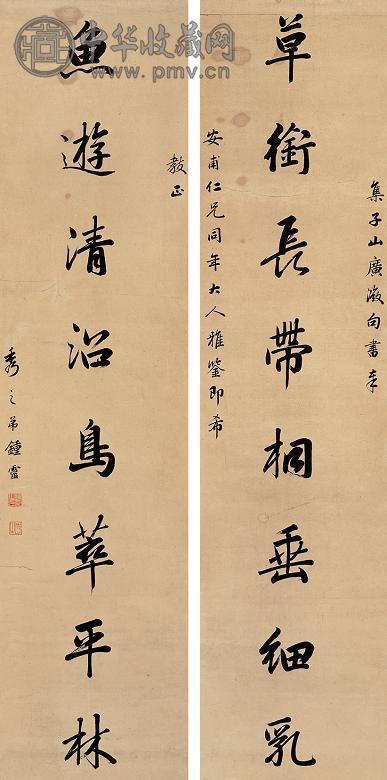 集子山廣激句書奉
草銜長帶桐垂細乳
安甫仁兄同年大人雅鑒即希
教正
魚遊清沼鳥萃平林
秀之弟鍾靈
中华收藏网
www.pmv.cn